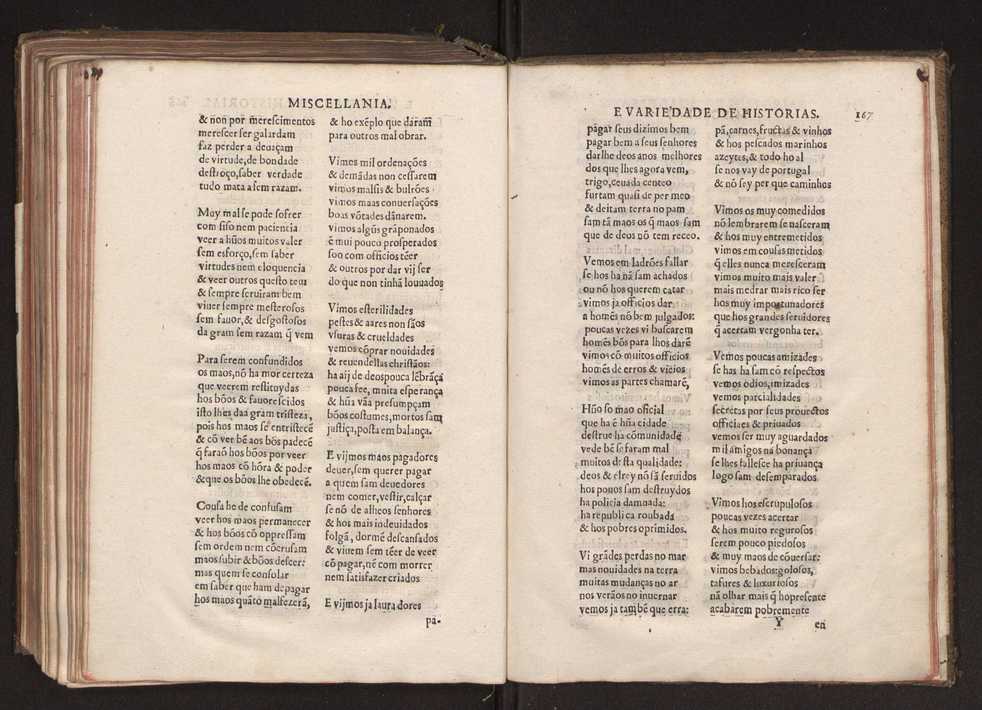 MISCELLANIA.
& non por merescimentos
merescer ser galardam
faz perder a deuaçam
de virtude, de bondade
destroço, saber verdade
tudo mata a sem razam.
Muy mal se pode sofrer
com siso nem paciencia
veer a hũos muitos valer
sem esforço, sem saber
virtudes nem eloquencia
& veer outros questo teus
& sempre seruiram bem
viuer sempre mesterosos
sem fauor, & desgostosos
da gram sem razam q̃ vem
Para serem confundidos
os maos, nõ ha mor certeza
que veerem restituydas
hos bõos & fauorescidos
isto lhes daa gram tristeza,
pois hos maos se entristecẽ
& cõ ver bẽ aos bõs padecẽ
q̃ faraõ hos bõos por veer
hos maos cõ hõra & poder
& que os bõos lhe obedecẽ.
Cousa he de confusam
veer hos maos permanecer
& hos bõos cõ oppressam
sem ordem nem cõcrusam
maos subir & bõos descer:
mas quem se consolar
em saber que ham de pagar
hos maos quãto mal fezerã,
& ho exẽplo que daram
para outros mal obrar.
Vimes mil ordenações
& demãdas non cessarem
vimos malsis & bulrões
vimos maas conuersações
boas võtades dãnarem.
Vimos algũs grãponados
ẽ mui pouco prosperados
soo com officios tẽer
& outros por dar vij ser
do que non tinhã louuados
Vimos esterilidades
pestes & aares non sãos
vsuras & crueldades
vemos cõprar nouidades
& reuendellas christãos:
ha aij de deos pouca lẽbrãça
pouca fee, muita esperança
& hũa vãa presumpçam
bõos costumes, mortos sam
justiça, posta em balança.
E vijmos maos pagadores
deuer, sem querer pagar
a quem sam deuedores
nem comer, vestir, calçar
se nõ de alheos senhores
& hos mais indeuidados
folgã, dormẽ descansados
& viuem sem tẽer de veer
cõ pagar, nẽ com morrer
nem satisfazer criados
E vijmos ja laura dores
pa-
E VARIEDADE DE HISTORIAS. 167
pagar seus dizimos bem
pagar bem a seus senhores
dar lhe deos anos melhores
dos que lhes agora vem,
trigo, ceuada centeo
furtam quasi de per meo
& deitam terra no pam
sam tã maos os q̃ maos sam
que de deus nõ tem receo.
Vemos em ladrões fallar
se hos ha nã sam achados
ou nõ hos querem catar
vimos ja officios dar
a homẽs nõ bem julgados:
poucas vezes vi buscarem
homẽs bõs para lhos darẽ
vimos cõ muitos officios
homẽs de erros & vicios
vimos as partes chamarẽ,
Hũo so mao oficial
que ha ẽ hũa cidade
destrue ha comũnidade
vede bẽ se faram mal
muitos desta qualidade:
deos & elrey nõ sã seruidos
hos pouos sam destruydos
ha policia damuada:
ha republica roubada
& hos pobres oprimidos.
Vi grãdes perdas no mar
mas nouidades na terra
muitas mudanças no ar
nos verãos no inuernar
vemos ja tambẽ que erra:
pã, carnes, fructas & vinhos
& hos pescados marinhos
azeytes, & todo ho al
se nos vay de portugal
& nõ sey per que caminhos
Vimos os muy comedidos
nõ lembrarem se nasceram
& hos muy entremetidos
vimos em cousas metidos
q̃ elles nunca merescerам
vimos muito mais valer
mais medrar mais rico ser
hos muy importunadores
que hos grandes seruidores
q̃ acertam vergonha ter.
Vemos poucas amizades
se has ha sam cõ respectos
vemos odios, imizades
vemos parcialidades
secretas por seus prouectos
officiaes & priuados
vemos ser muy aguardados
mil amigos na bonança
se lhes fallesce ha priuança
logo sam desemparados.
Vimos hos escrupulosos
poucas vezes acertar
& hos muito regurosos
serem pouco piedosos
& muy maos de cõuersar:
vimos bebados: golosos,
tafures & luxuriosos
nã olhar mais q̃ ho presente
acabarem pobremente
Y
en